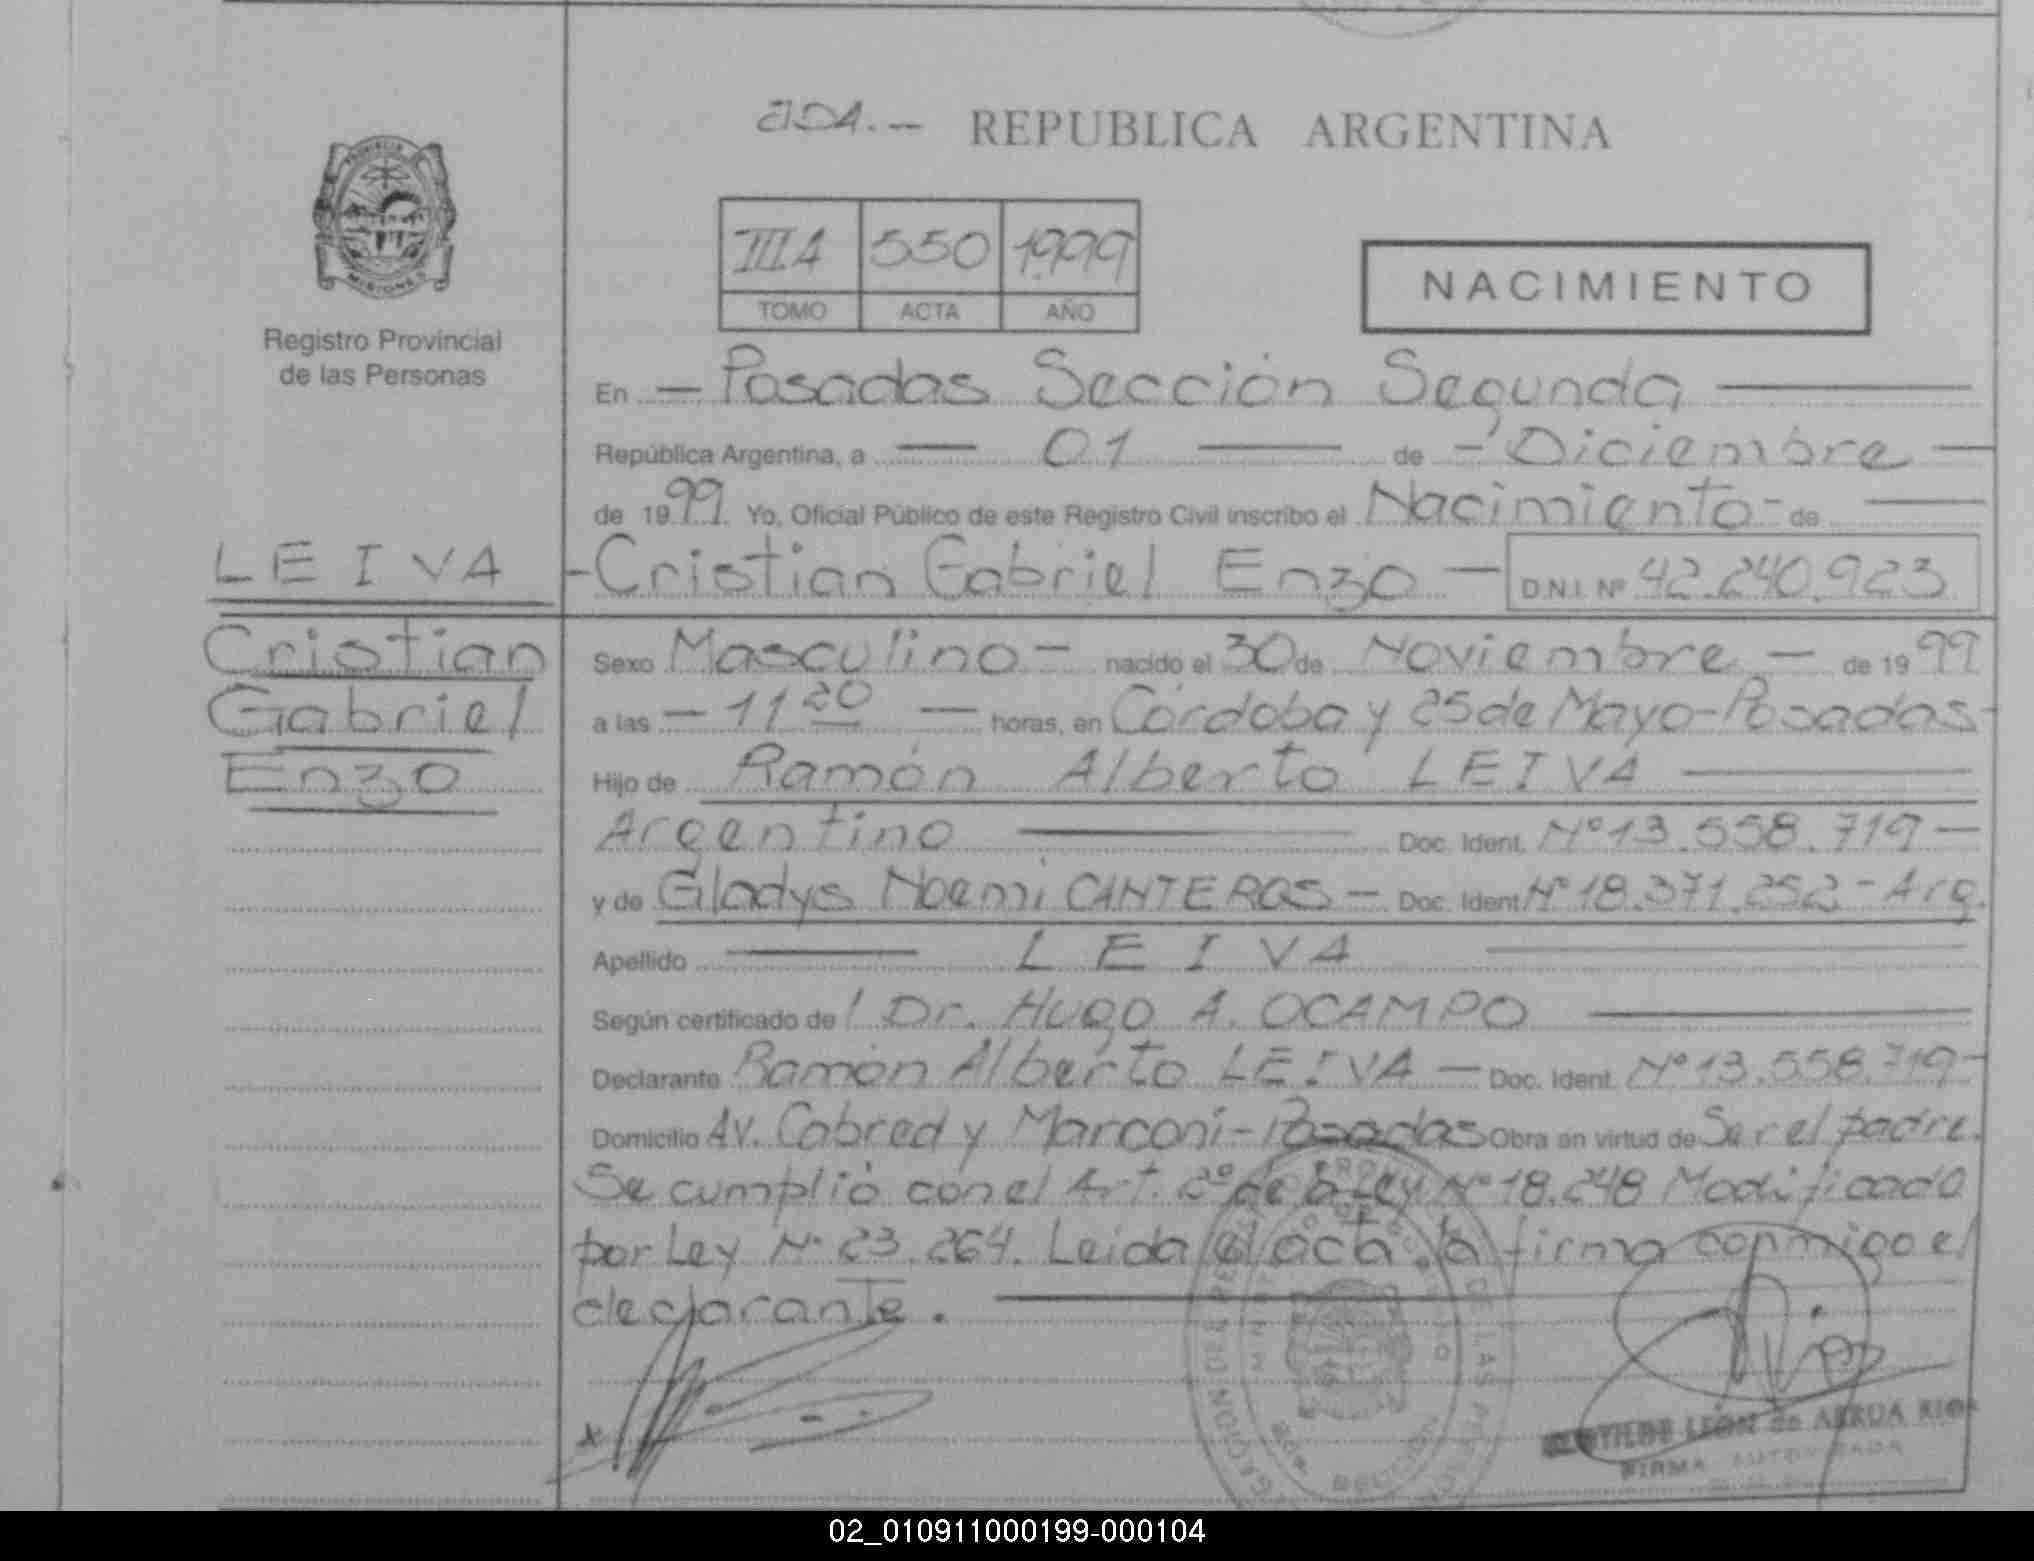 ADA.- REPUBLICA ARGENTINA
PROVINCIA
MISIONES
Registro Provincial
de las Personas
III A 550 1999
TOMO ACTA AÑO
NACIMIENTO
En - Posadas Sección Segunda
República Argentina, a - 01 - de - Diciembre -
de 1999 Yo, Oficial Público de este Registro Civil inscribo el Nacimiento - de
LEIVA - Cristian Gabriel Enzo - D.N.I. Nº 42.240.923
Cristian Sexo Masculino - nacido el 30 de Noviembre - de 1999
Gabriel a las - 11 20 - horas, en Córdoba y 25 de Mayo - Posadas -
Enzo Hijo de Ramón Alberto LEIVA
Argentino Doc. Ident. Nº 13.558.719 -
y de Gladys Noemi CANTEROS - Doc. Ident Nº 18.371.252 - Arg.
Apellido LEIVA
Según certificado de / Dr. Hugo A. OCAMPO
Declarante Ramón Alberto LEIVA - Doc. Ident. Nº 13.558.719 -
Domicilio Av. Cabred y Marconi - Posadas Obra en virtud de Ser el padre.
Se cumplió con el Art. 2º de la Ley Nº 18.248 Modificado
por Ley Nº 23.264. Leida el acta, la firma conmigo el
declarante.
LEON de ARRUA
FIRMA AUTORIZADA
02_010911000199-000104